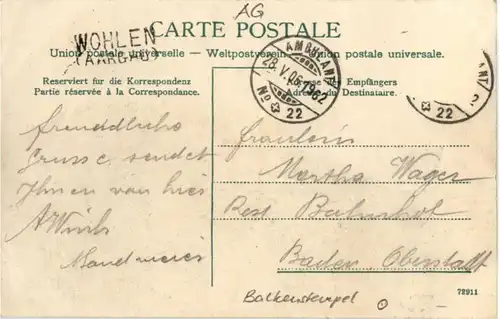 AG
CARTE POSTALE
WOHLEN
(AARGAU)
Union postale universelle – Weltpostverein – Union postale universale.
AMBULANT
28.V.06.
No 22
AMBULANT
22
Reserviert für die Korrespondenz
Partie réservée à la Correspondance.
Adresse des Empfängers
Adresse du Destinataire.
Freundliche
Grüsse sendet
Ihnen von hier
Fräulein
Martha Wager
Rest Bahnhof
Baden, Oberstadt
72911
Balkenstempel